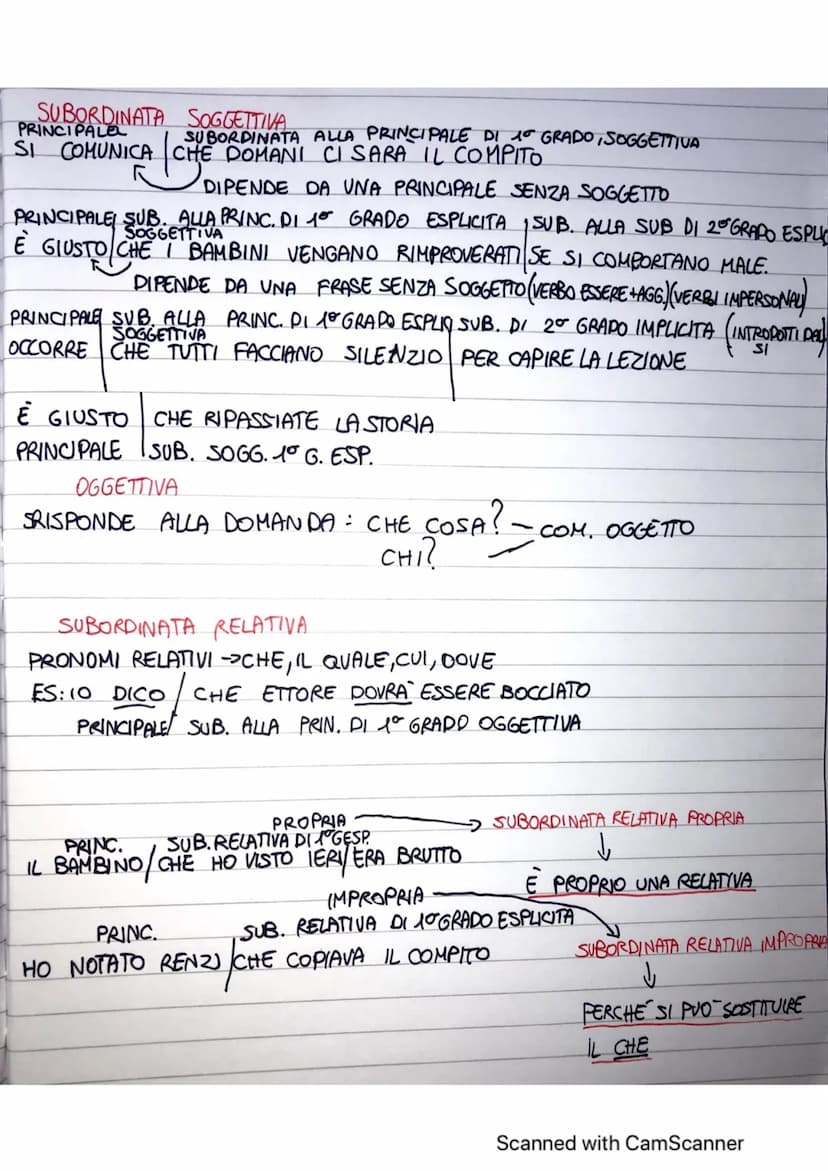 SUBORDINATA SOGGETTIVA
PRINCIPALE SUBORDINATA ALLA PRINCIPALE DI 1º GRADO, SOGGETTIVA
SI COMUNICA | CHE DOMANI CI SARA IL COMPITO
DIPENDE DA UNA PRINCIPALE SENZA SOGGETTO
PRINCIPALE SUB. ALLA PRINC. DI 1º GRADO ESPLICITA, SUB. ALLA SUB DI 2º GRADO ESPLIC
SOGGETTIVA
È GIUSTO | CHE I BAMBINI VENGANO RIMPROVERATI | SE SI COMPORTANO MALE.
DIPENDE DA UNA FRASE SENZA SOGGETTO (VERBO ESSERE+AGG.) (VERBI IMPERSONALI)
PRINCIPALE SUB. ALLA PRINC. DI 1º GRADO ESPLI SUB. DI 2º GRADO IMPLICITA (INTRODOTTI DAL
SOGGETTIVA SI
OCCORRE | CHE TUTTI FACCIANO SILENZIO | PER CAPIRE LA LEZIONE
È GIUSTO | CHE RIPASSIATE LA STORIA
PRINCIPALE | SUB. SOGG. 1º G. ESP.
OGGETTIVA
RISPONDE ALLA DOMANDA: CHE COSA? - COM. OGGETTO
CHI?
SUBORDINATA RELATIVA
PRONOMI RELATIVI → CHE, IL QUALE, CUI, DOVE
ES: IO DICO / CHE ETTORE DOVRA' ESSERE BOCCIATO
PRINCIPALE / SUB. ALLA PRIN. DI 1º GRADO OGGETTIVA
PROPRIA → SUBORDINATA RELATIVA PROPRIA
PRINC. SUB. RELATIVA DI 1º G ESP. ↓
IL BAMBINO / CHE HO VISTO IERI / ERA BRUTTO
È PROPRIO UNA RELATIVA
IMPROPRIA
PRINC. SUB. RELATIVA DI 1º GRADO ESPLICITA
SUBORDINATA RELATIVA IMPROPRIA
HO NOTATO RENZI / CHE COPIAVA IL COMPITO
↓
PERCHE' SI PUO' SOSTITUIRE
IL CHE
Scanned with CamScanner